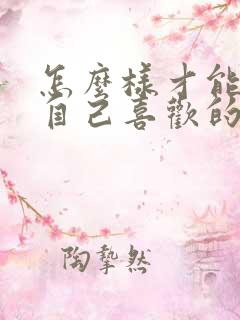 怎麼樣才能
自己喜歡的
陶摯然